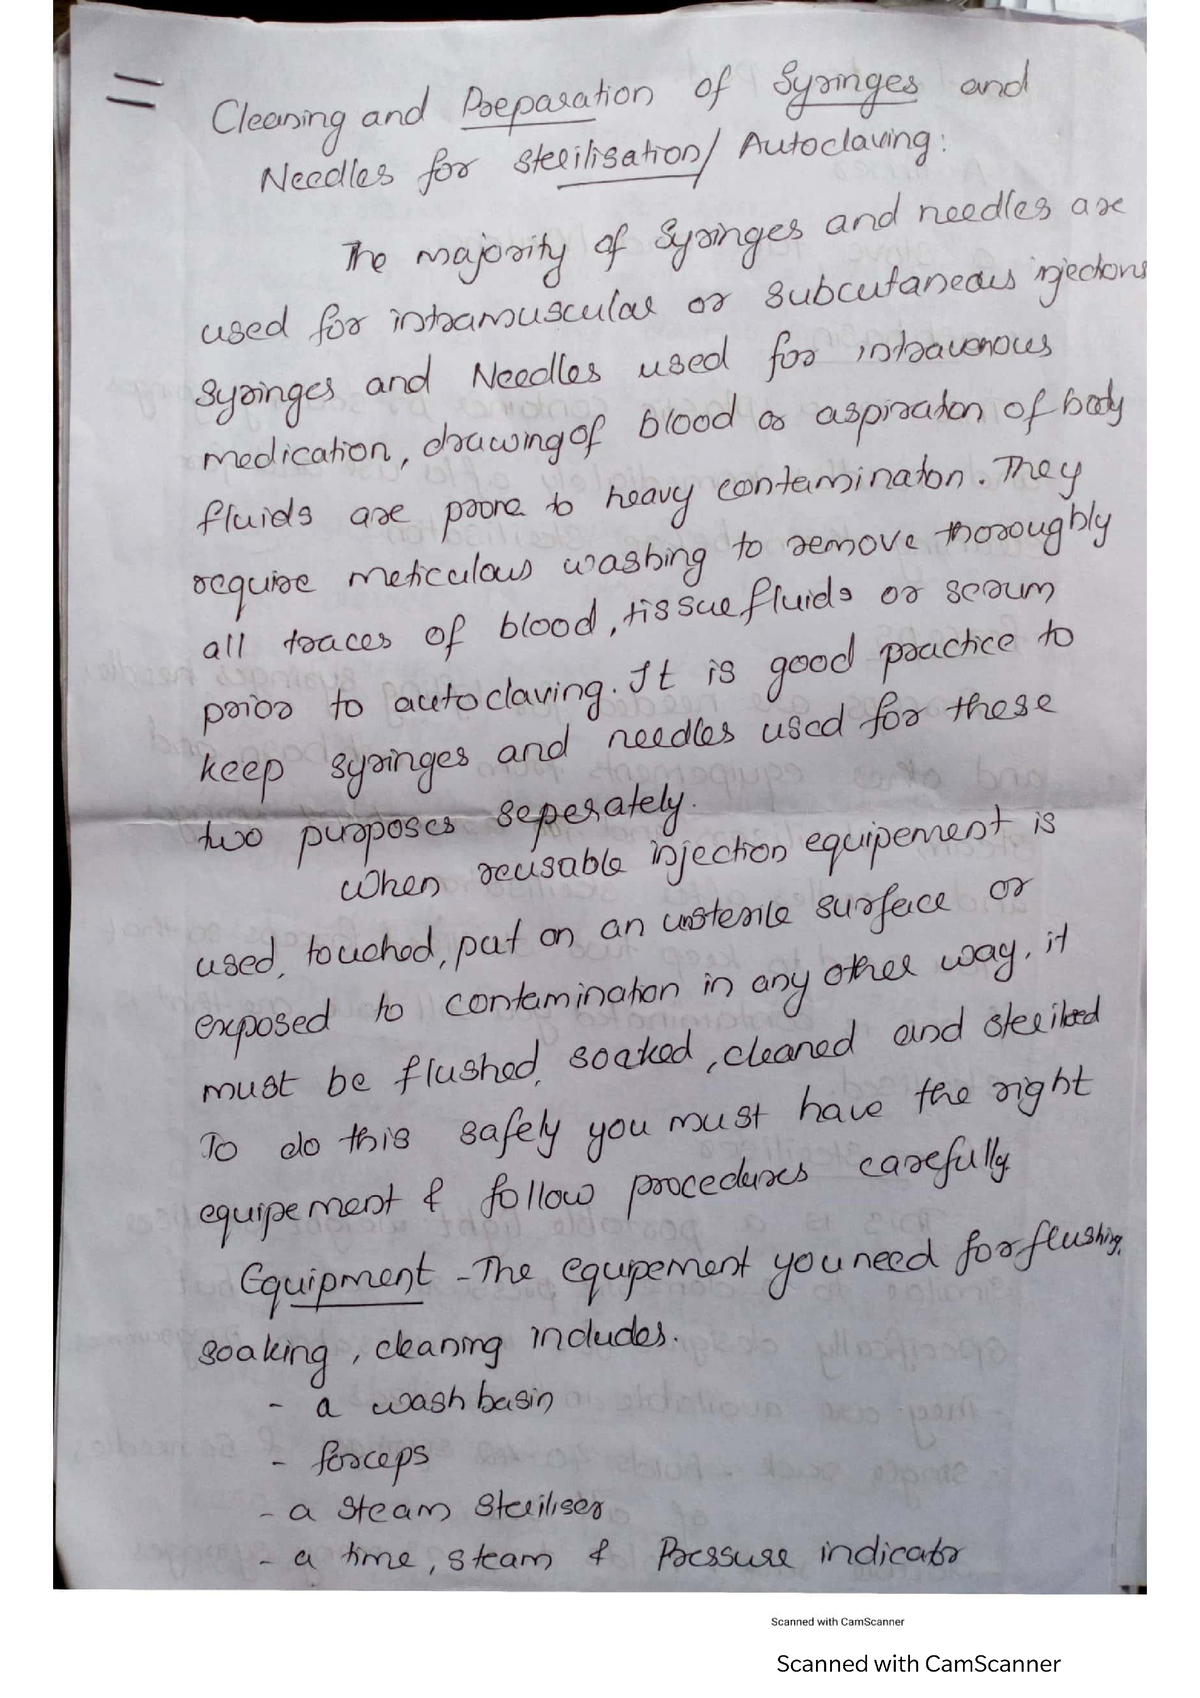 Cleaning and Preparation of Syringes and
Needles for Sterilisation/ Autoclaving:
The majority of Syringes and needles are
used for intramuscular or subcutaneous injections
Syringes and Needles used for intravenous
medication, drawing of blood or aspiration of body
fluids are prone to heavy contamination. They
require meticulous washing to remove thoroughly
all traces of blood, tissue fluids or serum
prior to autoclaving. It is good practice to
keep syringes and needles used for these
two purposes seperately.
When reusable injection equipement is
used, touched, put on an unsterile surface or
exposed to contamination in any other way, it
must be flushed, soaked, cleaned and sterilised
To do this safely you must have the right
equipement & follow procedures carefully.
Equipment - The equipement you need for flushing,
soaking, cleaning includes.
- a wash basin
- forceps
- a steam steriliser
- a time, steam & Pressure indicator
Scanned with CamScanner
Scanned with CamScanner